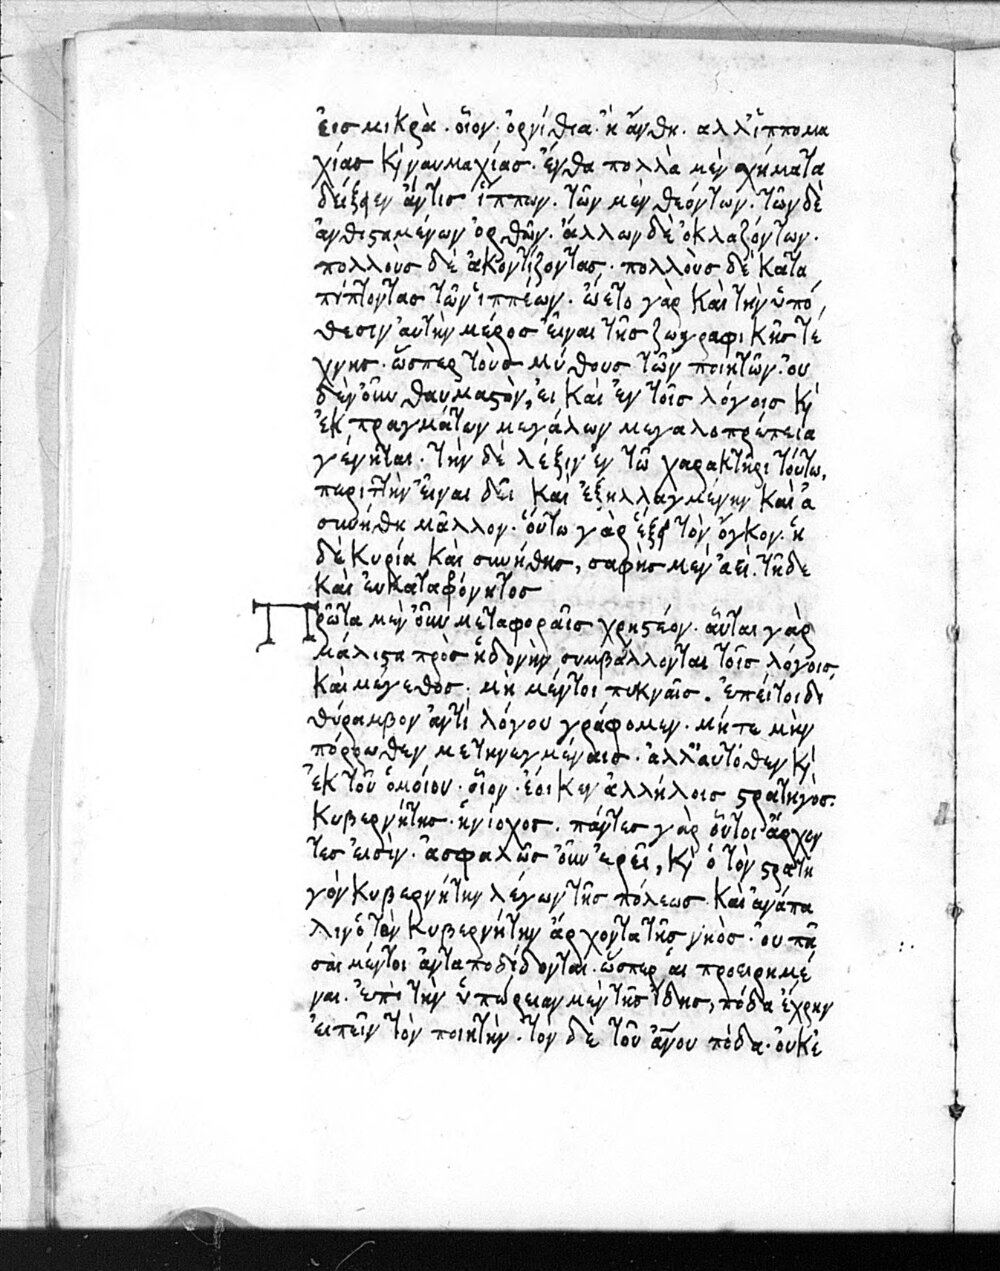 εἰς μικρὰ· οἷον· ὀρνίθια· ἢ ἄνθη· ἀλλ' ἱππομα
χίας κ̀ ναυμαχίας· ἔνθα πολλὰ μὲν σχήματα
δείξειεν ἄν τις ἵππων· τῶν μὲν θεόντων· τῶν δὲ
ἀνθισταμένων ὀρθῶν· ἄλλων δὲ ὀκλαζόντων·
πολλοὺς δὲ ἀκοντίζοντας· πολλοὺς δὲ κατα
πίπτοντας τῶν ἱππέων· ᾤετο γὰρ καὶ τὴν ὑπό
θεσιν αὐτὴν μέρος εἶναι τῆς ζωγραφικῆς τέ
χνης· ὥσπερ τοὺς μύθους τῶν ποιητῶν· οὐ
δὲν οὖν θαυμαστὸν, εἰ καὶ ἐν τοῖς λόγοις κ̀
ἐκ πραγμάτων μεγάλων μεγαλοπρέπεια
γένηται· τὴν δὲ λέξιν ἐν τῶ χαρακτῆρι τούτω,
περιττὴν εἶναι δεῖ καὶ ἐξηλλαγμένην καὶ ἀ
συνήθη μᾶλλον· οὕτω γὰρ ἕξει τὸν ὄγκον· ἡ
δὲ κυρία καὶ συνήθης, σαφὴς μὲν ἀεὶ· τῆδε
καὶ εὐκαταφρόνητος
Πρῶτα μὲν οὖν μεταφοραῖς χρηστέον· αὗται γὰρ
μάλιστα πρὸς ἡδονὴν συμβάλλονται τοῖς λόγοις
καὶ μέγεθος· μὴ μέντοι πυκναῖς. ἐπεί τοι δι
θύραμβον ἀντὶ λόγου γράφομεν· μήτε μὴν
πόρρωθεν μετηνεγμέναις· ἀλλ' αὐτόθεν κ̀
ἐκ τοῦ ὁμοίου· οἷον· ἔοικεν ἀλλήλοις στρατηγός·
κυβερνήτης· ἡνίοχος. πάντες γὰρ οὗτοι ἄρχον
τές εἰσιν· ἀσφαλῶς οὖν ἐρεῖ, κ̀ ὁ τὸν στρατη
γὸν κυβερνήτην λέγων τῆς πόλεως· καὶ ἀνάπα
λιν ὁ τὸν κυβερνήτην ἄρχοντα τῆς νηὸς· οὐ πᾶ
σαι μέντοι ἀνταποδίδονται· ὥσπερ αἱ προειρημέ
ναι· ἐπεὶ τὴν ὑπώρειαν μὲν τῆς ἴδης, πόδα ἐχρῆν
εἰπεῖν τὸν ποιητὴν· τὸν δὲ τοῦ ἀνου πόδα· οὐκέ